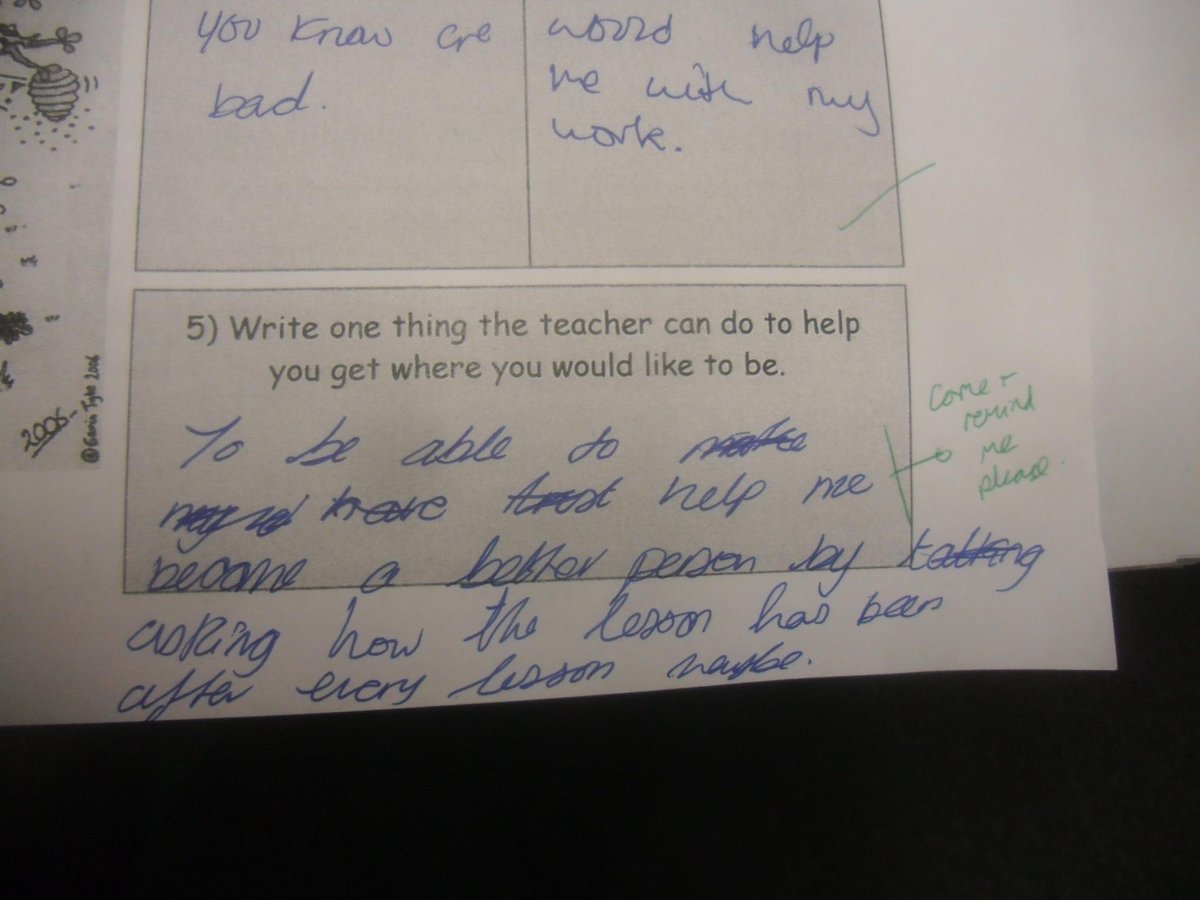 you know are
bad.
would help
me with my
work.
5) Write one thing the teacher can do to help
you get where you would like to be.
To be able to make
have trust help me
become a better person by talking
asking how the lesson has been
after every lesson maybe.
come +
remind
me
please.
2006